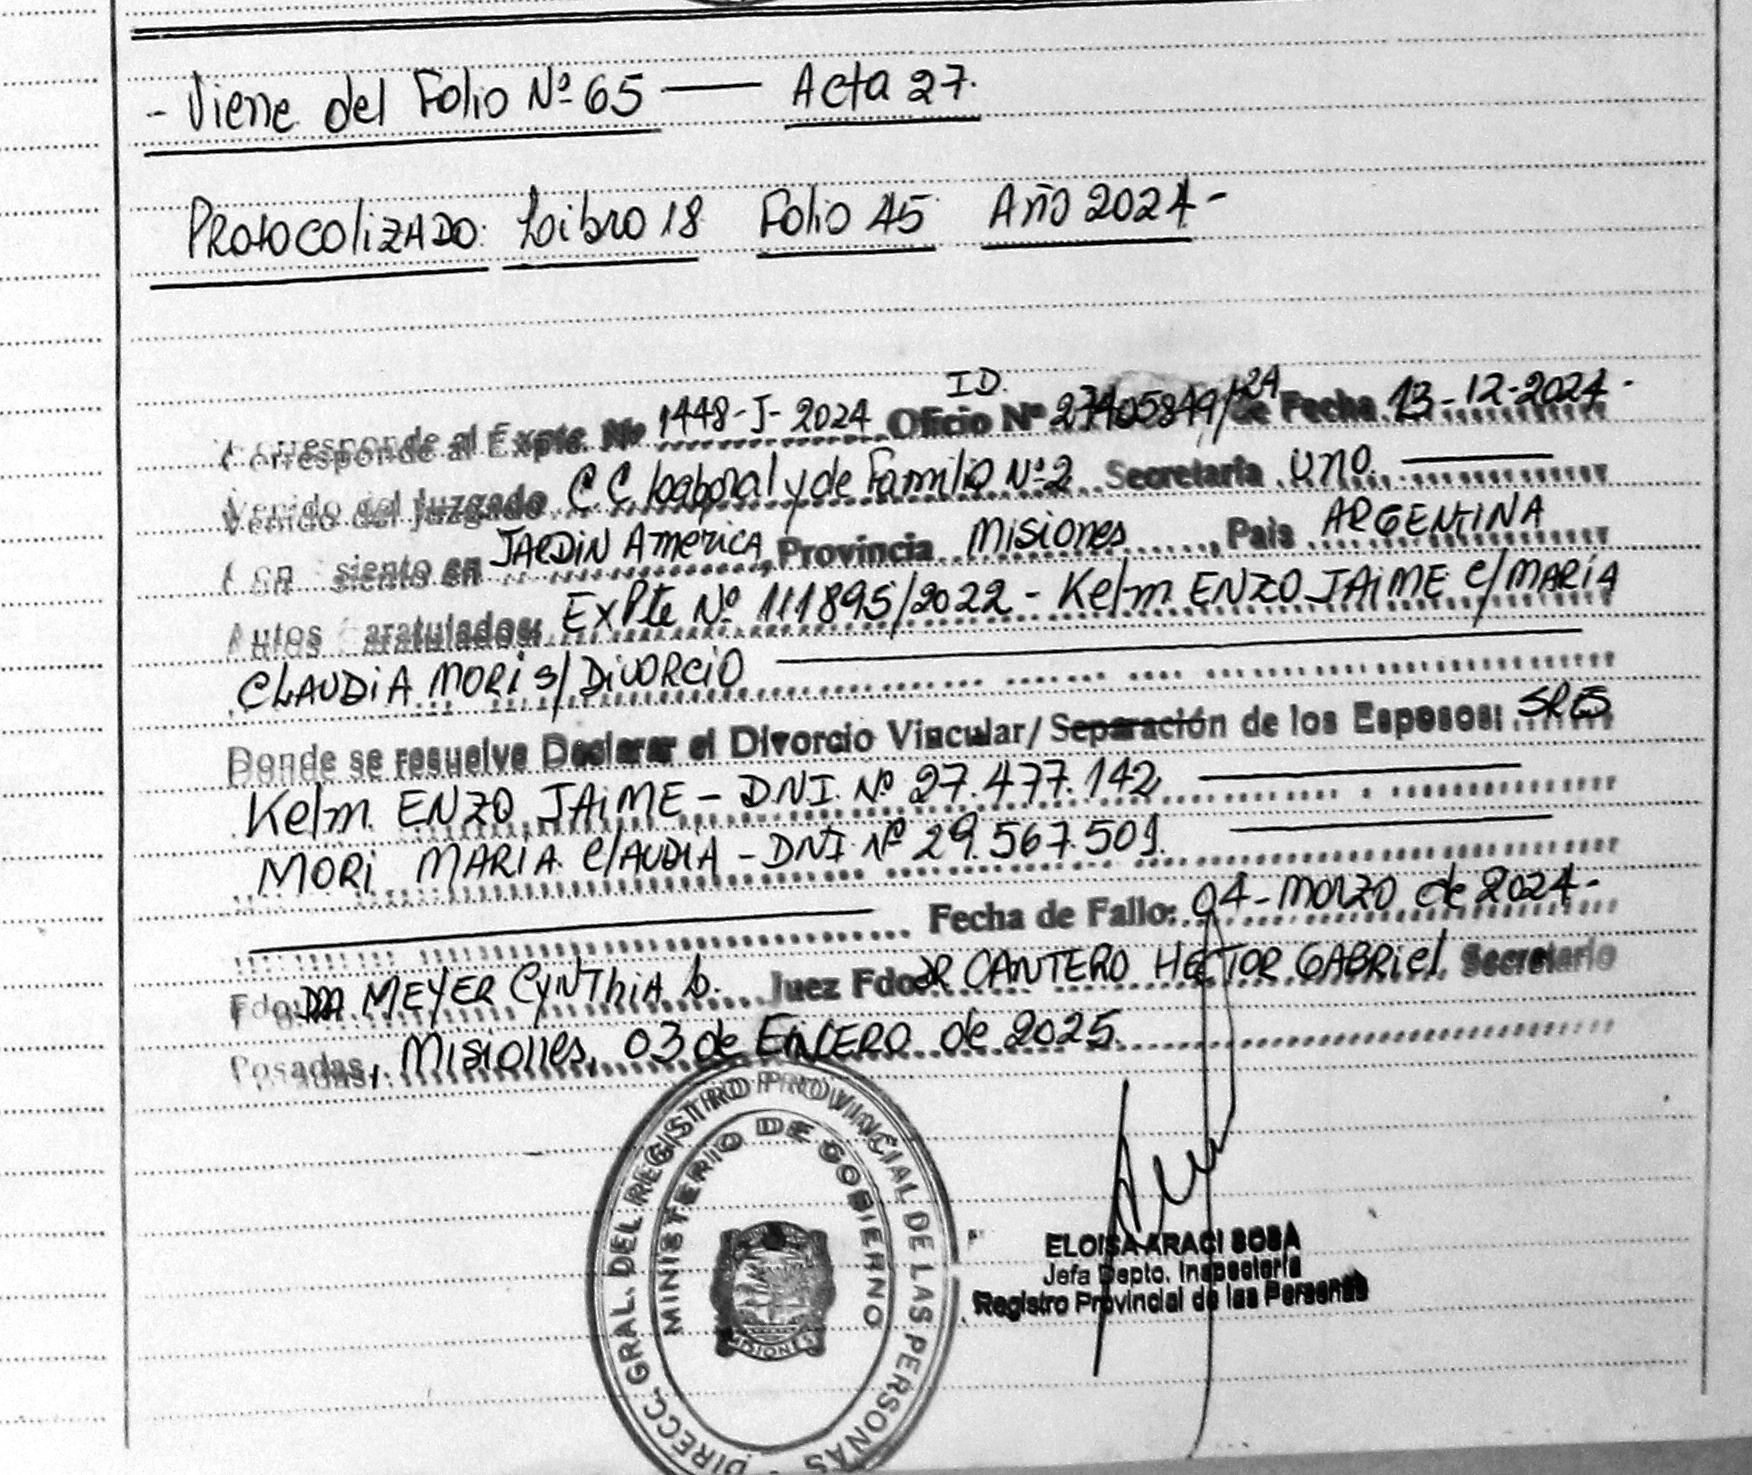 - Viene del Folio Nº 65 — Acta 27.
PROTOCOLIZADO: Libro 18 Folio 45 Año 2024 -
Corresponde al Expte. Nº 1448-J-2024 ID. Oficio Nº 27405849/24 de Fecha 13-12-2024-
Venido del Juzgado C C laboral y de Familia Nº 2 Secretaría uno.
Con siento en JARDIN America, Provincia Misiones, Pais ARGENTINA
Autos Caratulados: ExPte Nº 111895/2022 - Kelm ENZO JAIME C/ MARIA
CLAUDIA MORI S/ DIVORCIO
Donde se resuelve Declarar el Divorcio Vincular/ Separación de los Esposos: SRES
Kelm ENZO JAIME - DNI Nº 27.477.142
MORI MARIA ClAUDIA - DNI Nº 29.567.509.
Fecha de Fallo: 04 - marzo de 2024 -
Fdo: DRA MEYER CYNTHIA b. Juez Fdo: DR CANTERO HECTOR GABRIEL Secretario
Posadas, Misiones, 03 de ENERO de 2025
DIRECC. GRAL. DEL REGISTRO PROVINCIAL DE LAS PERSONAS
MINISTERIO DE GOBIERNO
ELOISA ARACI SOSA
Jefa Depto. Inspectoría
Registro Provincial de las Personas